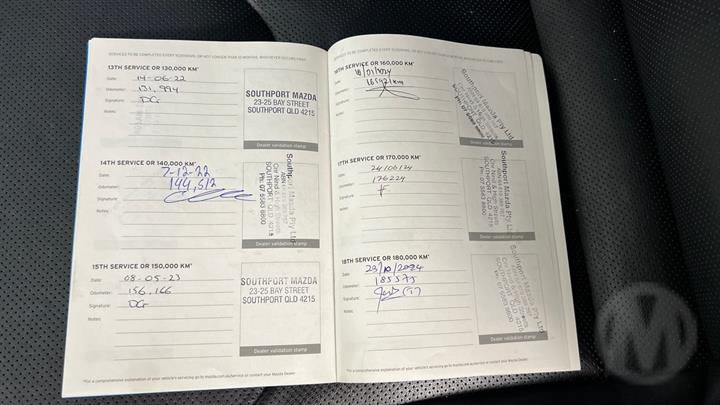 SERVICES TO BE COMPLETED EVERY 10,000KMS, OR NOT LONGER THAN 12 MONTHS, WHICHEVER OCCURS FIRST.
13TH SERVICE OR 130,000 KM*
Date: 14-06-22
Odometer: 131,994
Signature: DG
Notes:
SOUTHPORT MAZDA
23-25 BAY STREET
SOUTHPORT QLD 4215
Dealer validation stamp
14TH SERVICE OR 140,000 KM*
Date: 7-12-22
Odometer: 144,512
Signature:
Notes:
Southport Mazda Pty Ltd
Cnr Nind & High Streets
SOUTHPORT QLD 4215
Ph: 07 5583 8800
Dealer validation stamp
15TH SERVICE OR 150,000 KM*
Date: 08-05-23
Odometer: 156,166
Signature: DG
Notes:
SOUTHPORT MAZDA
23-25 BAY STREET
SOUTHPORT QLD 4215
Dealer validation stamp
*For a comprehensive explanation of your vehicle's servicing go to mazda.com.au/service or contact your Mazda Dealer
16TH SERVICE OR 160,000 KM*
Date: 18/01/2024
Odometer:
Signature:
Notes:
Southport Mazda Pty Ltd
Dealer validation stamp
17TH SERVICE OR 170,000 KM*
Date: 24/06/24
Odometer: 176224
Signature:
Notes:
Southport Mazda Pty Ltd
Cnr Nind & High Streets
SOUTHPORT QLD 4215
Ph: 07 5583 8800
Dealer validation stamp
18TH SERVICE OR 180,000 KM*
Date: 29/10/2024
Odometer: 185575
Signature:
Notes:
Southport Mazda Pty Ltd
Dealer validation stamp
*For a comprehensive explanation of your vehicle's servicing go to mazda.com.au/service or contact your Mazda Dealer